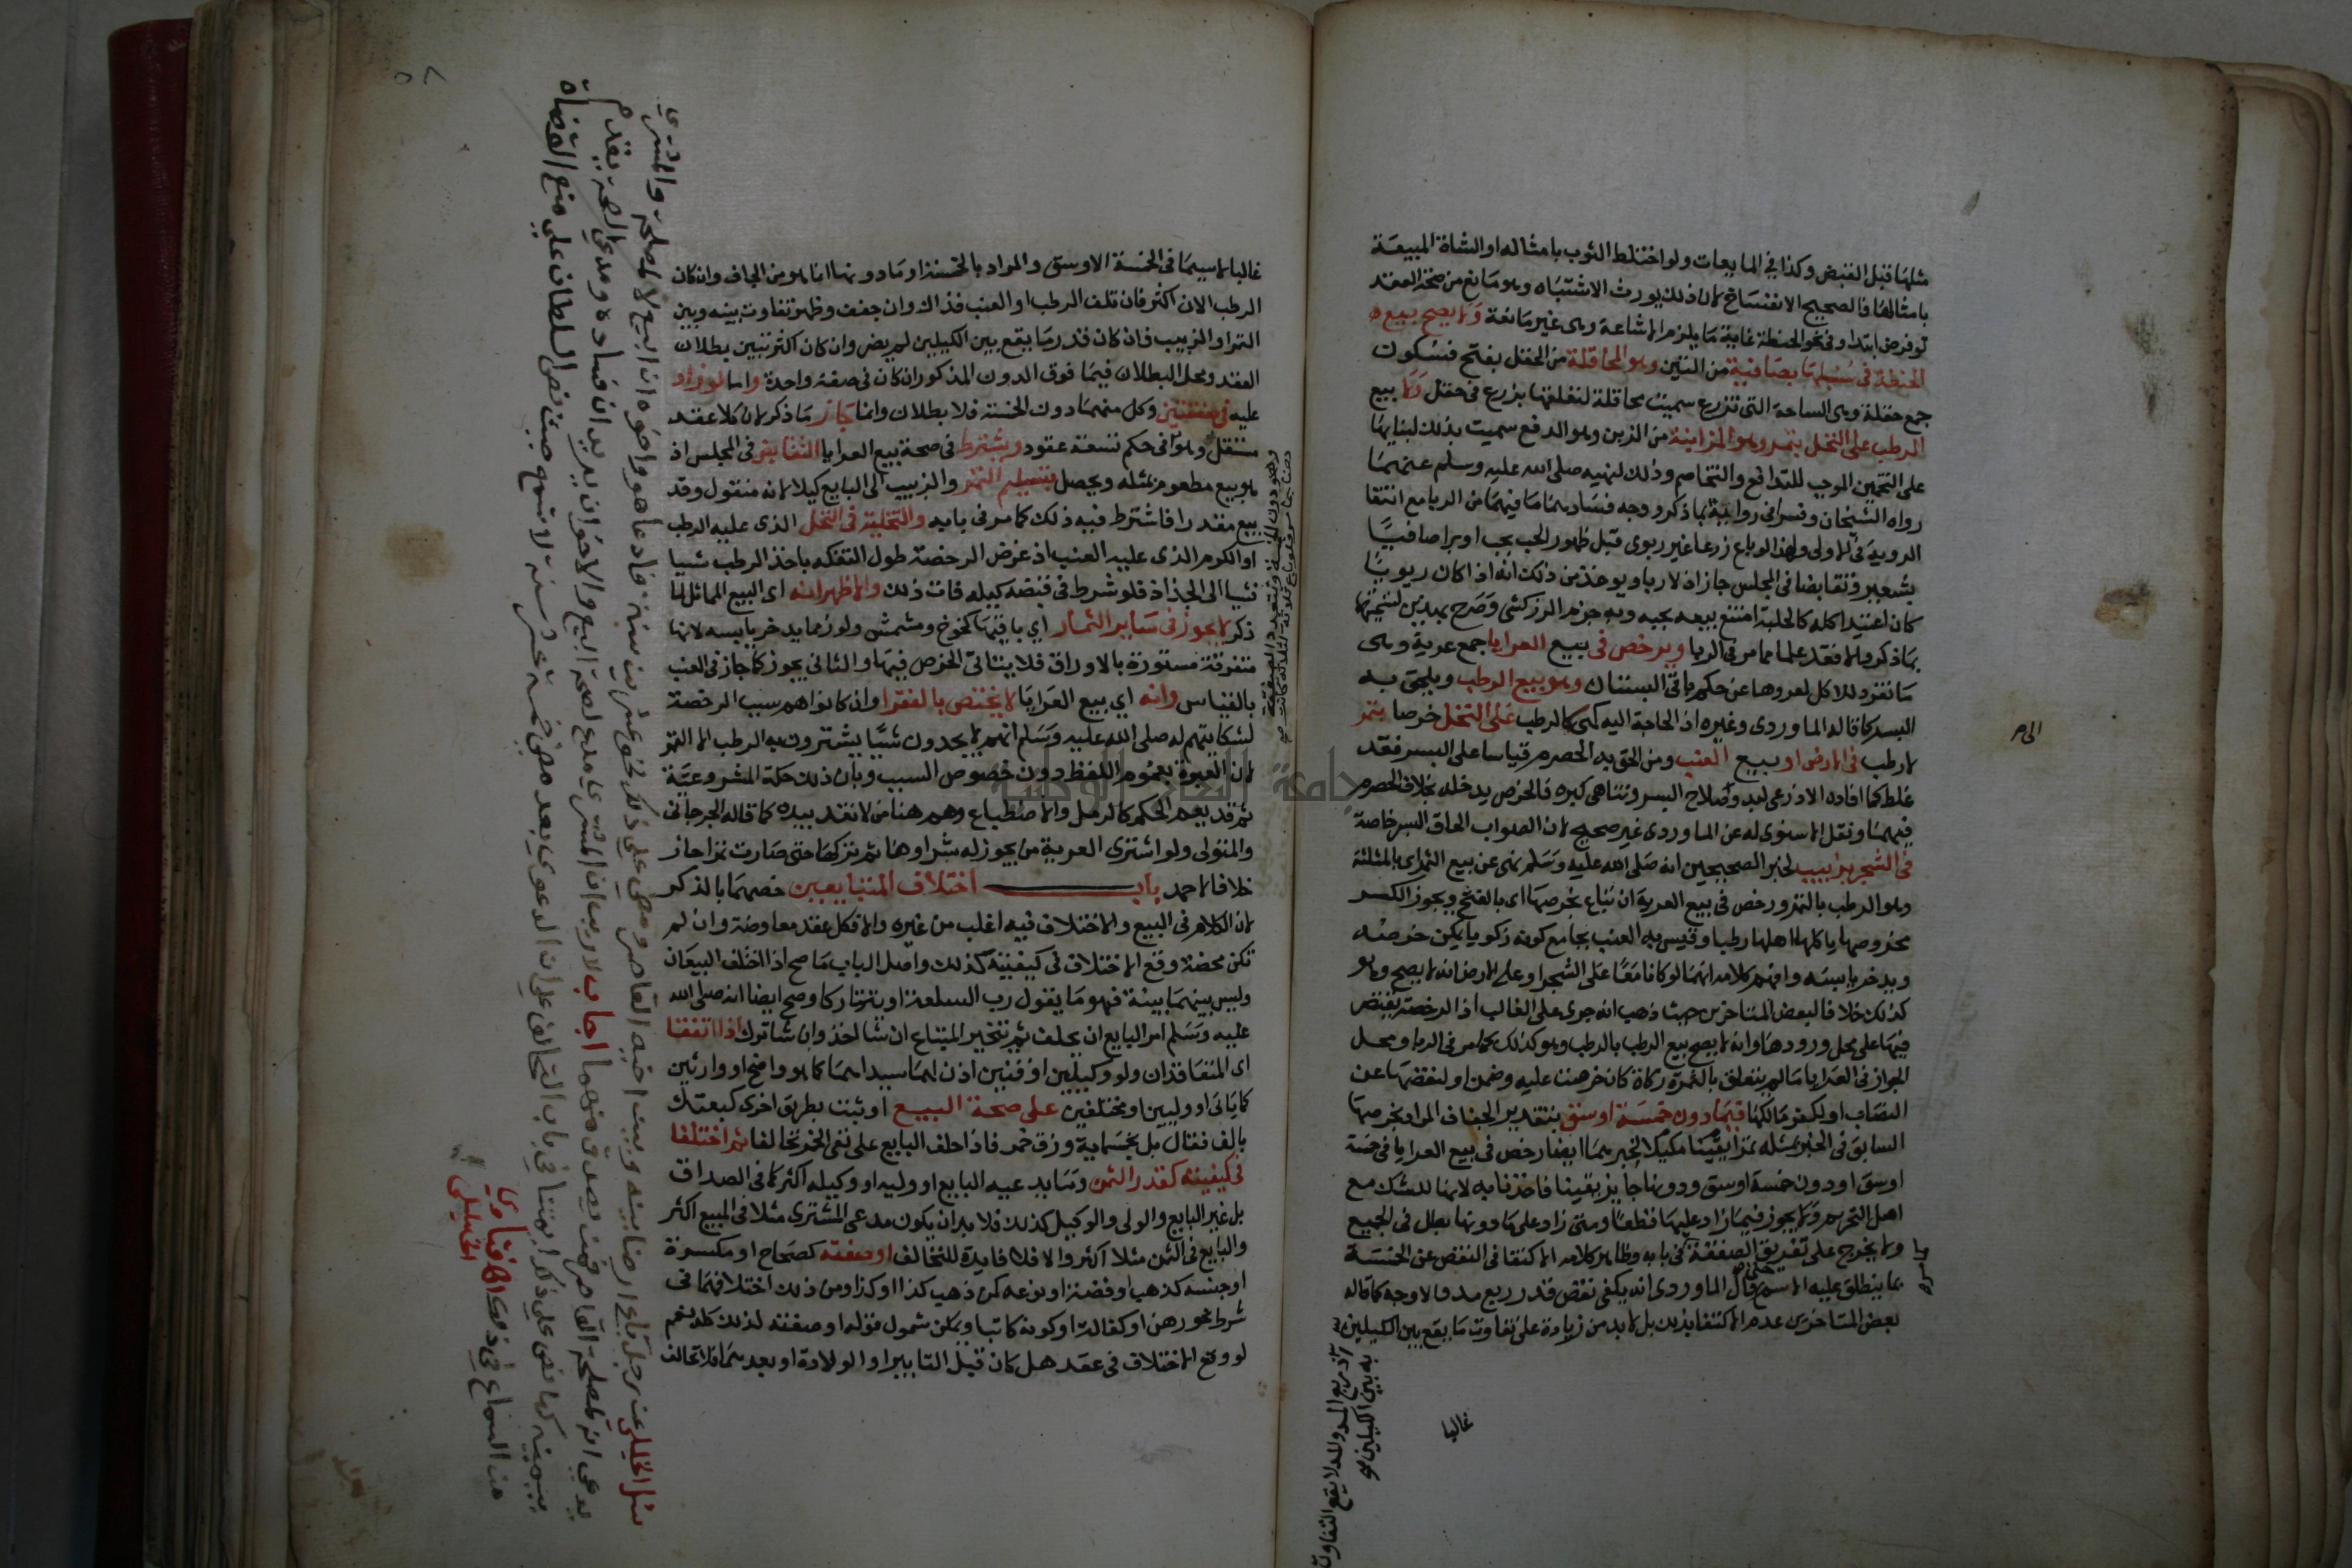 مثلها قبل القبض وكذا في المايعات ولو اختلط الثوب بامثاله او الشاة المبيعة
بامثالها فالصحيح الانفساخ لان ذلك يورث الاشتباه وهو مانع من صحة العقد
لو فرض ابتداء وفي نحو الحنطة غايته ما يلزم المشاعة وهي غير مانعة ولا يصح بيع
الحنطة في سنبلها بصافية من التبن وهو المحاقلة من الحقل بفتح فسكون
جمع حقلة وهي الساحة التي تزرع سميت محاقلة لتعلقها بزرع في حقل ولا بيع
الرطب على النخل بتمر وهو المزابنة من الزبن وهو الدفع سميت بذلك لبنايها
على التخمين الموجب للتدافع والتخاصم وذلك لنهيه صلى الله عليه وسلم عنهما
رواه الشيخان وفسرا في رواية بما ذكر ووجه فسادهما ما فيهما من الربا مع انتفا
الروية في الاولى ولهذا لو باع زرعا غير ربوي قبل ظهور الحب بحب او برا صافيا
بشعير وتقابضا في المجلس جاز اذ لا ربا ويوخذ من ذلك انه اذا كان ربويا
كان اعتيد اكله كالحلبة امتنع بيعه بحبه وبه جزم الزركشي وصرح بهذين لتسميتها
بما ذكر والا فقد علما مما مر في الربا ويرخص في بيع العرايا جمع عرية وهي
ما تفرد للاكل لعروها عن حكم باقي البستنان وهو بيع الرطب ويلحق به
البسر كما قاله الماوردي وغيره اذ الحاجة اليه كهي كالرطب على النخل خرصا بتمر
لا رطب في الارض او بيع العنب ومن الحق به الحصرم قياسا على البسر فقد
غلط كما افاده الاذرعي لبدو صلاح البسر وتناهي كبره فالخرص يدخله بخلاف الحصرم
فيهما ونقل الاسنوي له عن الماوردي غير صحيح لان الصواب الحاق البسر خاصة
في الشجر بزبيب لخبر الصحيحين انه صلى الله عليه وسلم نهى عن بيع الثمر اي بالمثلثة
وهو الرطب بالتمر ورخص في بيع العرية ان تباع بخرصها اي بالفتح ويجوز الكسر
مخروصها ياكلها اهلها رطبا وقيس به العنب بجامع كونه زكويا يمكن خرصه
ويدخر يابسه وافهم كلامه انهما لو كانا معا على الشجر او على الارض انه لا يصح وهو
كذلك خلافا لبعض المتاخرين حيث ذهب انه جرى على الغالب اذ الرخصة يقتصر
فيها على محل ورودها وانه لا يصح بيع الرطب بالرطب وهو كذلك كما مر في الربا ومحل
الجواز في العرايا ما لم يتعلق بالثمرة زكاة كان خرصت عليه وضمن او لنقصها عن
النصاب او لكفر مالكها فيما دون خمسة اوسق بتقدير الجفاف المراد بخرصها
السابق في الخبر بمثله تمرا يقينا مكيلا لخبرهما ايضا رخص في بيع العرايا في خمسة
اوسق او دون خمسة اوسق ودونها جايز يقينا فاخذنا به لانها للشك مع
اصل التحريم ولا يجوز فيما زاد عليها قطعا ومتى زاد على ما دونها بطل في الجميع
ولا يخرج على تفريق الصفقة في بابه وظاهر كلامه الاكتفا في النقص عن الخمسة
بما ينطلق عليه الاسم قال الماوردي انه يكفي نقص قدر ربع مد فالاوجه كما قاله
بعض المتاخرين عدم الاكتفا بذلك بل لا بد من زيادة على تفاوت ما يقع بين الكيلين
اذ ربع المد والمد لا يقع التفاوت
به بين الكيلين
غالبا
الى م
غالبا لا سيما في الخمسة الاوسق والمراد بالخمسة او ما دونها انما هو من الجاف وان كان
الرطب الان اكثر فان تلف الرطب او العنب فذاك وان جفف وظهر تفاوت بينه وبين
التمر او الزبيب فان كان قدر ما يقع بين الكيلين لم يضر وان كان اكثر تبين بطلان
العقد ومحل البطلان فيما فوق الدون المذكور ان كان في صفقة واحدة واما لو زاد
عليه في صفقتين وكل منهما دون الخمسة فلا بطلان وانما جاز ما ذكر لان كلا عقد
مستقل وهو في حكم تسعة عقود ويشترط في صحة بيع العرايا التقابض في المجلس اذ
هو بيع مطعوم بمثله ويحصل بتسليم التمر والزبيب الى البايع كيلا لانه منقول وقد
بيع مقدرا فاشترط فيه ذلك كما مر في بابه والتخلية في النخل الذي عليه الرطب
او الكرم الذي عليه العنب اذ غرض الرخصة طول التفكه باخذ الرطب شيا
فشيا الى الجذاذ فلو شرط في قبضه كيله فات ذلك والاظهر انه اي البيع المماثل لما
ذكر لا يجوز في ساير الثمار اي باقيها كخوخ ومشمش ولوز مما يدخر يابسه لانها
متفرقة مستورة بالاوراق فلا يتاتى الخرص فيها والثاني يجوز كما جاز في العنب
بالقياس وانه اي بيع العرايا لا يختص بالفقرا وان كانوا هم سبب الرخصة
لشكايتهم له صلى الله عليه وسلم انهم لا يجدون شيا يشترون به الرطب الا التمر
لان العبرة بعموم اللفظ دون خصوص السبب وبان ذلك حكمة المشروعية
ثم قد يعم الحكم كالرمل والاضطباع وهم هنا من لا نقد بيده كما قاله الجرجاني
والمتولي ولو اشترى العرية من يجوز له شراوها ثم تركها حتى صارت تمرا جاز
خلافا لاحمد باب اختلاف المتبايعين خصهما بالذكر
لان الكلام في البيع والاختلاف فيه اغلب من غيره والا فكل عقد معاوضة وان لم
تكن محضة وقع الاختلاف في كيفيته كذلك واصل الباب ما صح اذا اختلف البيعان
وليس بينهما بينة فهو ما يقول رب السلعة او يتتاركا وصح ايضا انه صلى الله
عليه وسلم امر البايع ان يحلف ثم يتخير المبتاع ان شا اخذ وان شا ترك اذا اتفقا
اي المتعاقدان ولو وكيلين او قنين اذن لهما سيداهما كما هو واضح او وارثين
كما ياتي او وليين او مختلفين على صحة البيع او ثبت بطريق اخرى كبعتك
بالف فقال بل بخمسماية وزق خمر فاذا حلف البايع على نفي الخمر تحالفا ثم اختلفا
في كيفيته كقدر الثمن وما يدعيه البايع او وليه او وكيله اكثر كما في الصداق
بل غير البايع والولي والوكيل كذلك فلا بد ان يكون مدعى المشتري مثلا في المبيع اكثر
والبايع في الثمن مثلا اكثر والا فلا فايدة للتحالف او صفته كصحاح او مكسرة
او جنسه كذهب او فضة او نوعه كمن ذهب كذا او كذا ومن ذلك اختلافهما في
شرط نحو رهن او كفالة او كونه كاتبا ويمكن شمول قوله او صفته لذلك كله نعم
لو وقع الاختلاف في عقد هل كان قبل التابير او الولادة او بعدهما فلا تحالف
سئل الخليلي عن رجل باع ارضا بينه وبين اخيه القاصر ومضى على ذلك نحو عشرين سنة فادعا هو واخوه ان البيع لا لمصلحة والمشتري
يدعي انه لمصلحة القاصر فمن يصدق منهما اجاب لا ريب ان المشتري مدع لصحة البيع والاخوان يريدان فساده ومدعي الصحة يقدم
بيمينه كما نص على ذلك ايمتنا في باب التحالف على ان الدعوى بعد مضي خمسة عشر سنة لا تسمع حيث نص السلطان على منع القضاة
من السماع في ذلك اه فتاوي
الخليلي